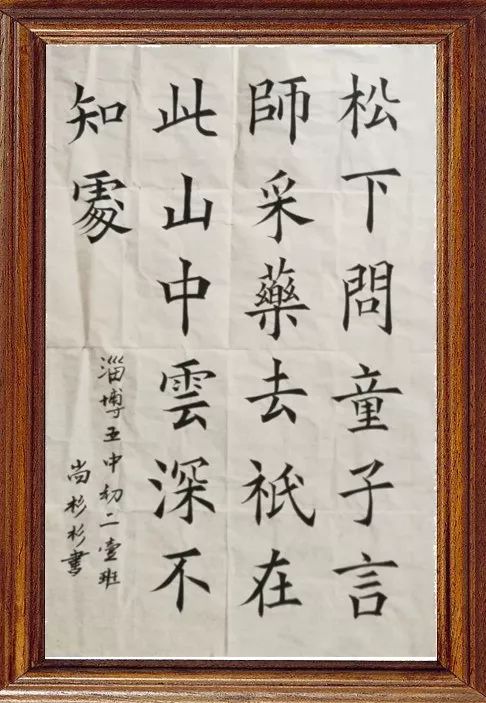 松下問童子言
師采藥去祇在
此山中雲深不
知處
淄博五中初二壹班
尚杉杉書